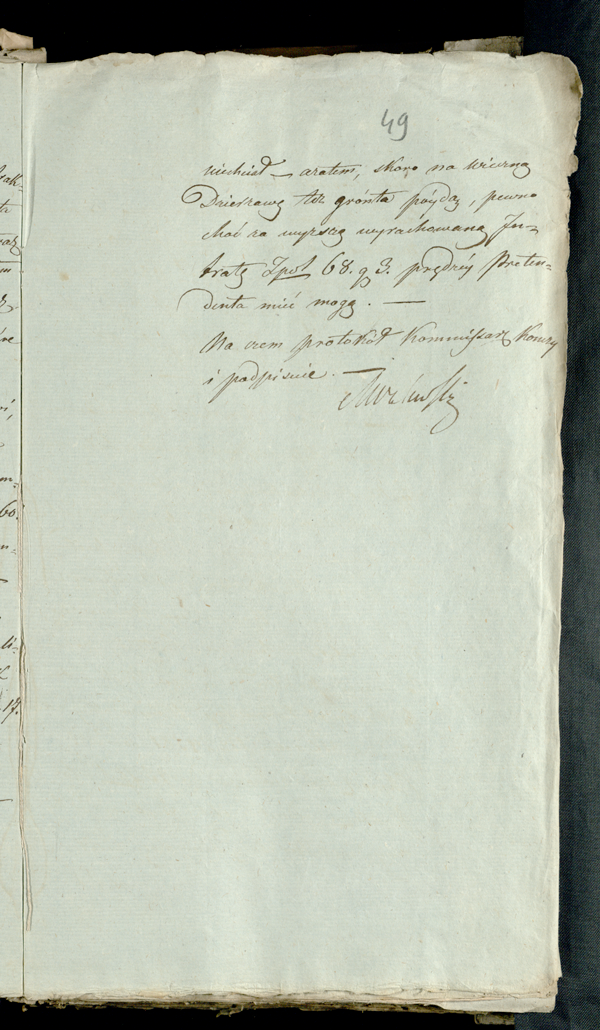 49
niechciał — azatem, skoro na wieczną
Dzierzawę też gronta póydą, pewno
choć za wyższą wyrachowaną In-
tratę Zpol 68. g 3. prędzéy Preten-
denta mieć mogą. —
Na czem protokół Kommissarz Konczy
i podpisuie. —